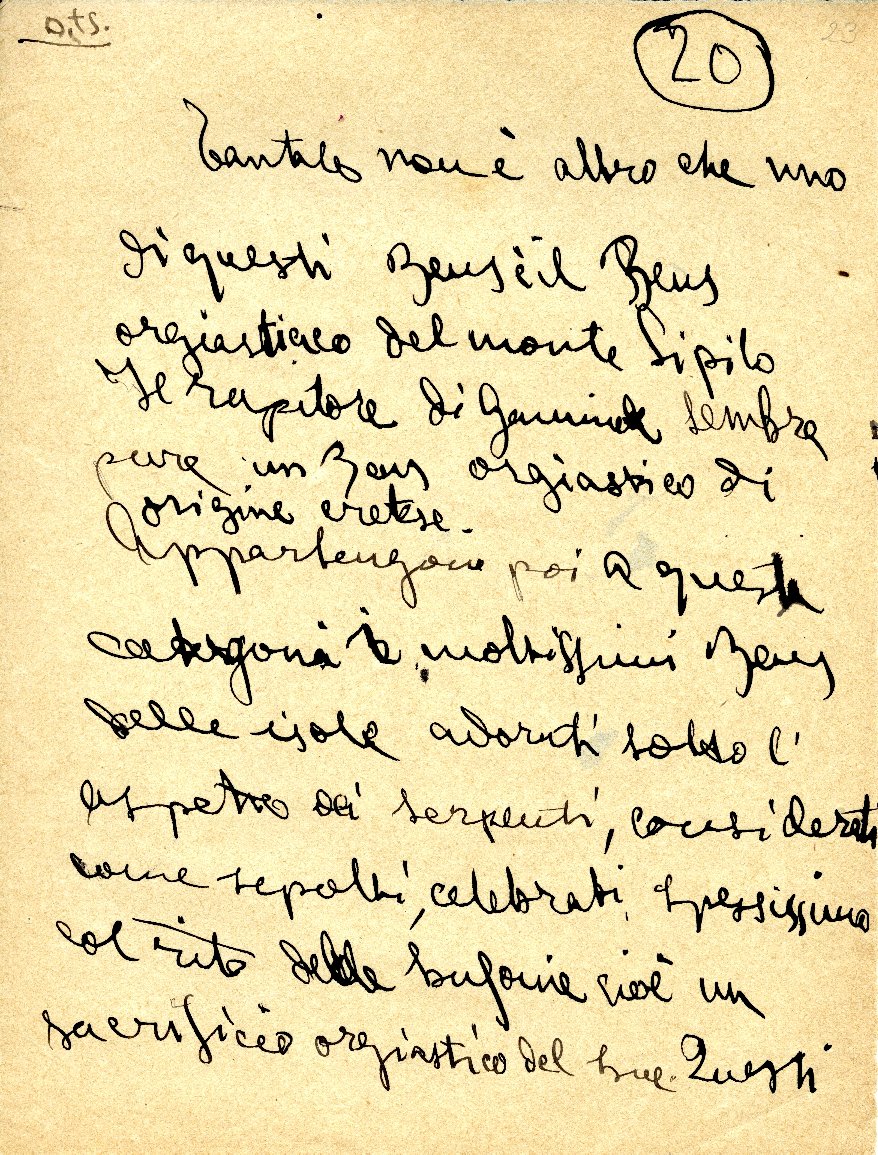 o,ts.
20
23
Tantalo non è altro che uno
di questi Zeus è il Zeus
orgiastico del monte Sipilo
Il rapitore di Ganimede sembra
pure un Zeus orgiastico di
origine cretese.
Appartengono poi a questa
categoria i moltissimi Zeus
delle isole adorati sotto l'
aspetto di serpenti, considerati
come sepolti, celebrati spessissimo
col rito delle bufonie cioè un
sacrificio orgiastico del bue. Questi